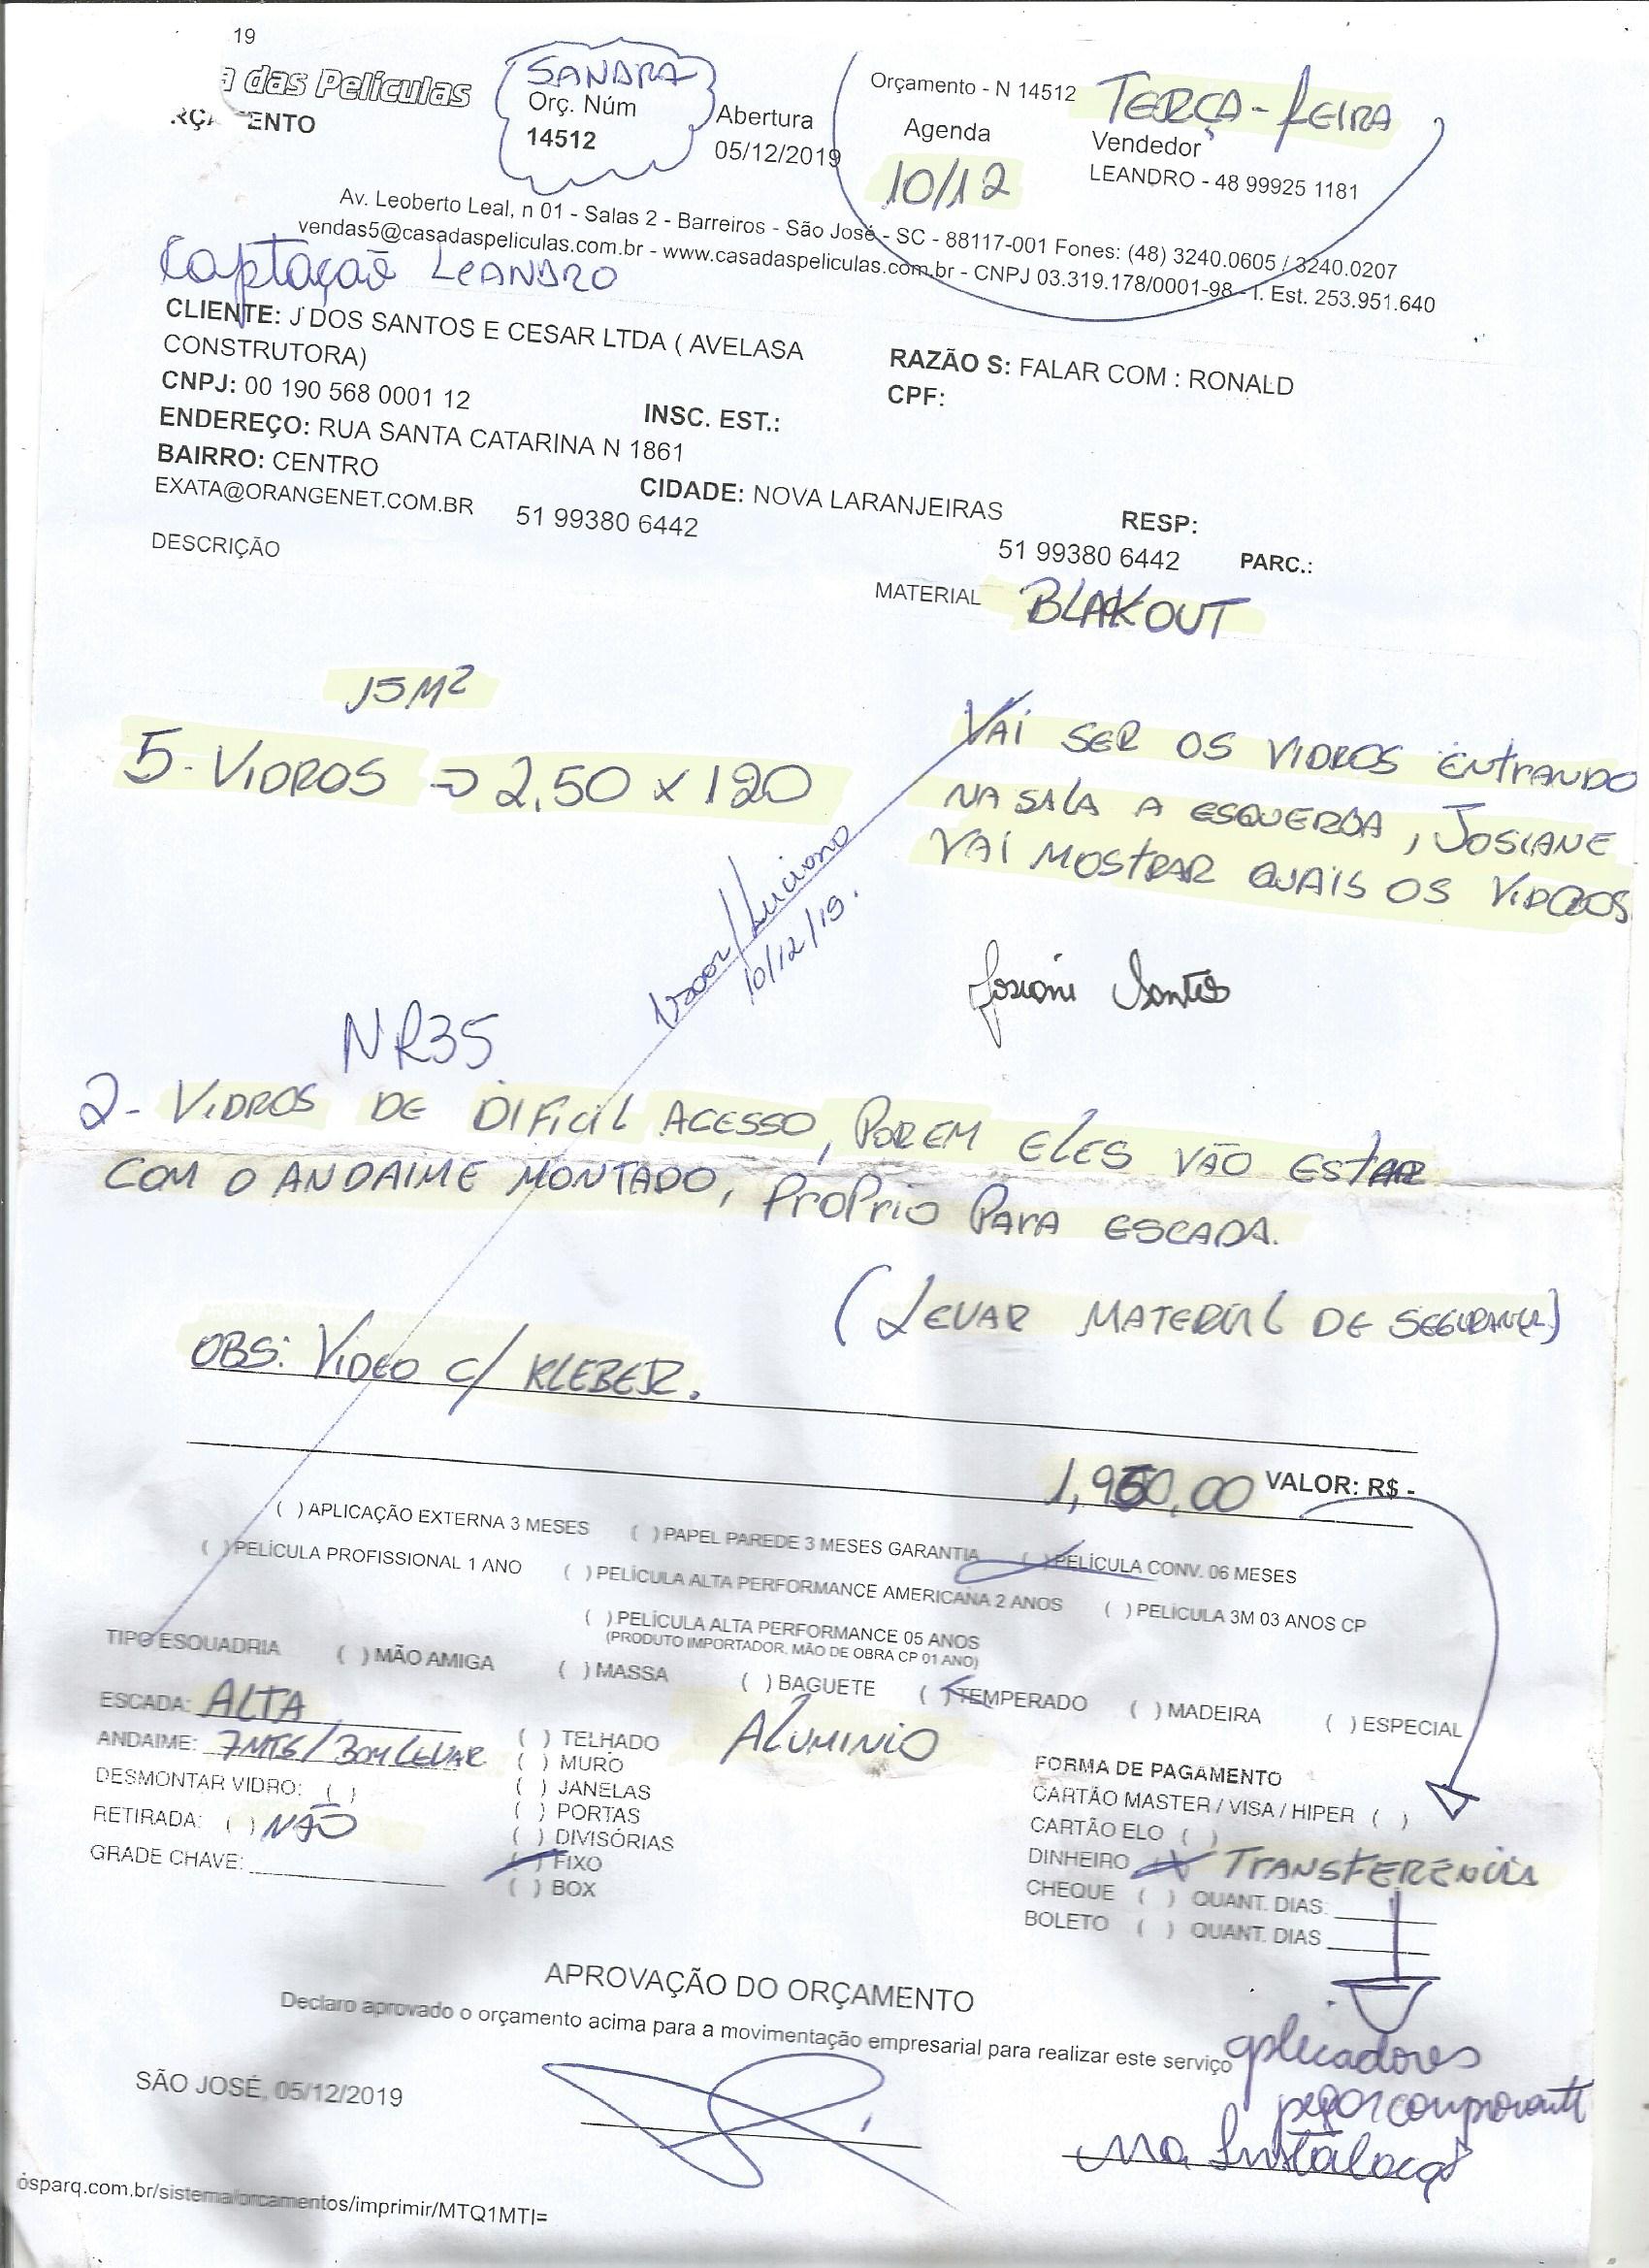 19
a das Películas
SANDRA
Orç. Núm
14512
Abertura
05/12/2019
Orçamento - N 14512
TERÇA-FEIRA
Agenda
10/12
Vendedor
LEANDRO - 48 99925 1181
ENTO
Av. Leoberto Leal, n 01 - Salas 2 - Barreiros - São José - SC - 88117-001 Fones: (48) 3240.0605 / 3240.0207
vendas5@casadaspeliculas.com.br - www.casadaspeliculas.com.br - CNPJ 03.319.178/0001-98 - I. Est. 253.951.640
Captação LEANDRO
CLIENTE: J DOS SANTOS E CESAR LTDA ( AVELASA
CONSTRUTORA)
RAZÃO S: FALAR COM : RONALD
CNPJ: 00 190 568 0001 12
INSC. EST.:
CPF:
ENDEREÇO: RUA SANTA CATARINA N 1861
BAIRRO: CENTRO
CIDADE: NOVA LARANJEIRAS
RESP:
EXATA@ORANGENET.COM.BR
51 99380 6442
51 99380 6442
PARC.:
DESCRIÇÃO
MATERIAL BLAKOUT
15M²
5-VIDROS => 2,50 x 120
VAI SER OS VIDROS ENTRANDO
NA SALA A ESQUERDA, JOSIANE
VAI MOSTRAR QUAIS OS VIDROS
Luciano
10/12/19.
Josiani Santos
NR35
2- VIDROS DE DIFICIL ACESSO, POREM ELES VÃO ESTAR
COM O ANDAIME MONTADO, PROPRIO PARA ESCADA.
(LEVAR MATERIAL DE SEGURANÇA)
OBS: VIDEO C/ KLEBER.
1,950,00 VALOR: R$ -
( ) APLICAÇÃO EXTERNA 3 MESES ( ) PAPEL PAREDE 3 MESES GARANTIA ( ) PELÍCULA CONV. 06 MESES
( ) PELÍCULA PROFISSIONAL 1 ANO ( ) PELÍCULA ALTA PERFORMANCE AMERICANA 2 ANOS ( ) PELICULA 3M 03 ANOS CP
( ) PELÍCULA ALTA PERFORMANCE 05 ANOS
(PRODUTO IMPORTADOR, MÃO DE OBRA CP 01 ANO)
TIPO ESQUADRIA ( ) MÃO AMIGA ( ) MASSA ( ) BAGUETE ( ) TEMPERADO ( ) MADEIRA ( ) ESPECIAL
ALUMINIO
ESCADA: ALTA
ANDAIME: 7MTS/BOM LEVAR
DESMONTAR VIDRO: ( )
RETIRADA: ( ) NÃO
GRADE CHAVE:
( ) TELHADO
( ) MURO
( ) JANELAS
( ) PORTAS
( ) DIVISÓRIAS
( ) FIXO
( ) BOX
FORMA DE PAGAMENTO
CARTÃO MASTER / VISA / HIPER ( )
CARTÃO ELO ( )
DINHEIRO (X) TRANSFERÊNCIA
CHEQUE ( ) QUANT. DIAS:
BOLETO ( ) QUANT. DIAS
APROVAÇÃO DO ORÇAMENTO
Declaro aprovado o orçamento acima para a movimentação empresarial para realizar este serviço
aplicadores
pegar comprovante
na Instalação
SÃO JOSÉ, 05/12/2019
osparq.com.br/sistema/orcamentos/imprimir/MTQ1MTI=